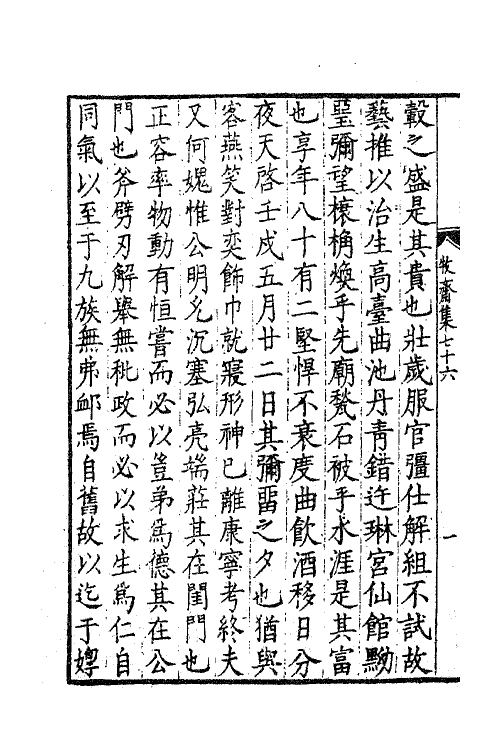 轂之盛是其貴也壯歲服官彊仕解組不試故
藝推以治生高臺曲池丹靑錯迕琳宮仙館黝
堊彌望榱桷煥乎先廟甃石被乎水涯是其富
也享年八十有二堅悍不衰度曲飮酒移日分
夜天啓壬戌五月廿二日其彌留之夕也猶與
客燕笑對奕飾巾就寢形神已離康寧考終夫
又何媿惟公明允沉塞弘亮端莊其在閨門也
正容率物動有恒嘗而必以豈弟爲德其在公
門也斧劈刃解擧無秕政而必以求生爲仁自
同氣以至于九族無弗卹焉自舊故以迄于嫥
牧齋集七十六
一